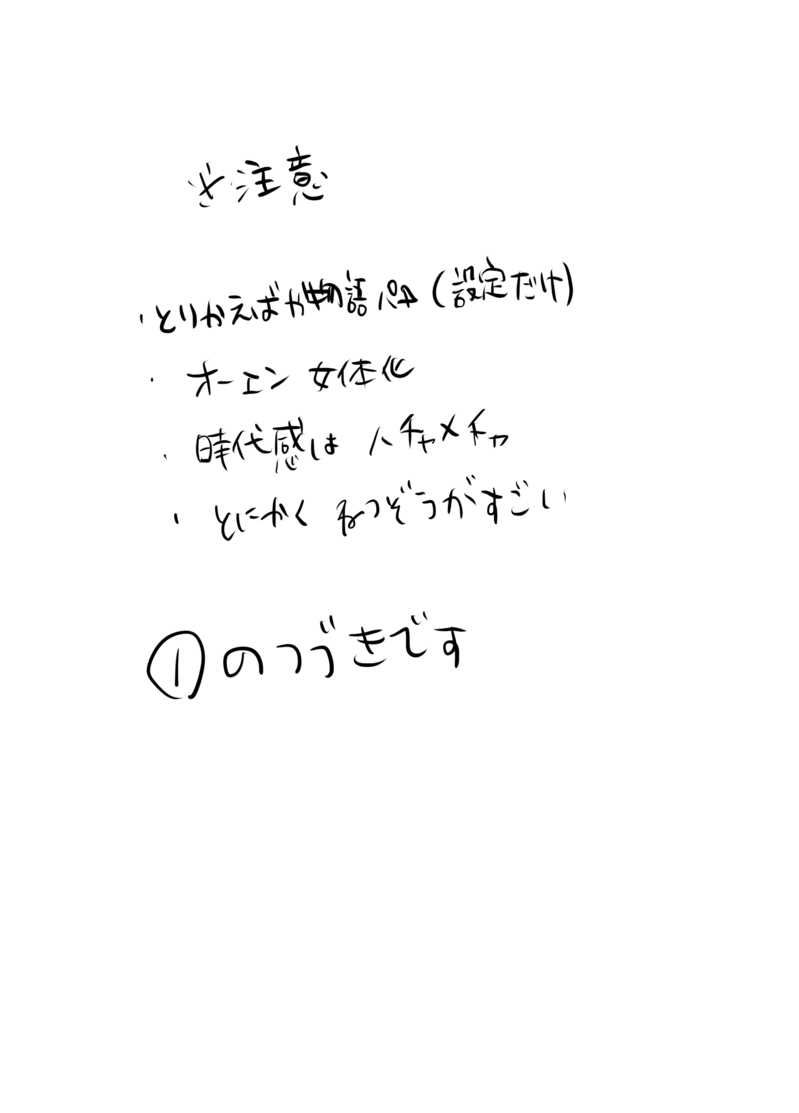 ※注意
・とりかえばや物語パロ(設定だけ)
・オーエン 女体化
・時代感は ハチャメチャ
・とにかく ねつぞうがすごい
①のつづきです